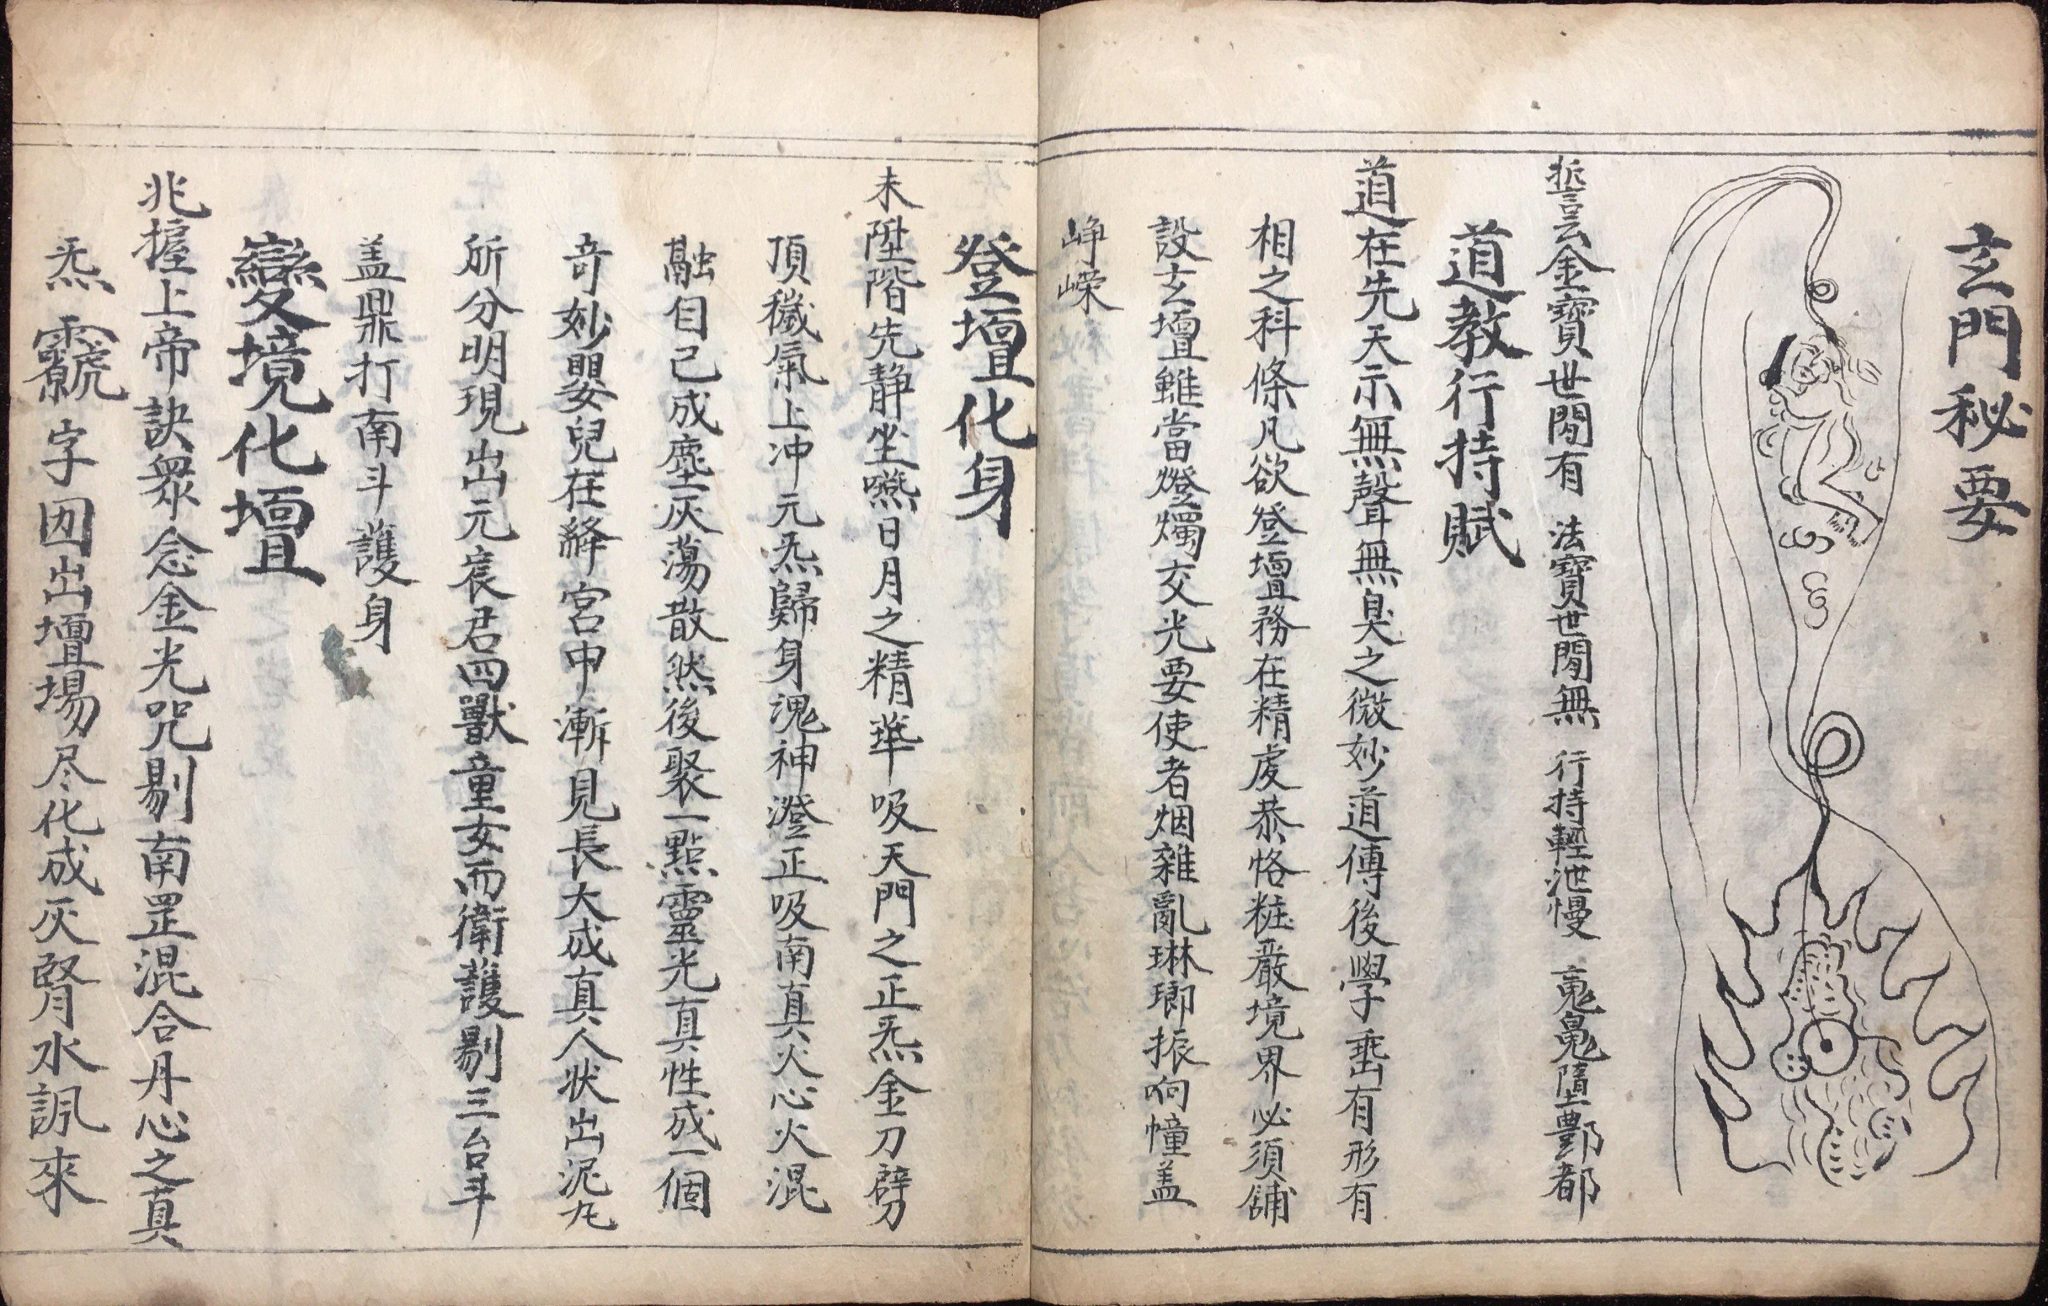 玄門秘要
誓云金寶世間有 法寶世間無 行持輕泄慢 䰟鬼墮酆都
道教行持賦
道在先天示無聲無臭之微妙道傳後學垂有形有
相之科條凡欲登壇務在精虔恭恪粧嚴境界必須舖
設玄壇雖當燈燭交光要使香烟雜亂琳瑯振响幢盖
崢嶸
登壇化身
未陞階先静坐嚥日月之精華吸天門之正炁金刀劈
頂穢氣上冲元炁歸身魂神澄正吸南真火心火混
融自己成塵灰蕩散然後聚一點靈光真性成一個
竒妙嬰兒在絳宮中漸見長大成真人状出泥丸
所分明現出元宸君四獸童女而衛護剔三台斗
盖鼎打南斗護身
變境化壇
兆握上帝訣衆念金光咒剔南罡混合丹心之真
炁 字囡出壇場尽化成灰腎水訊來